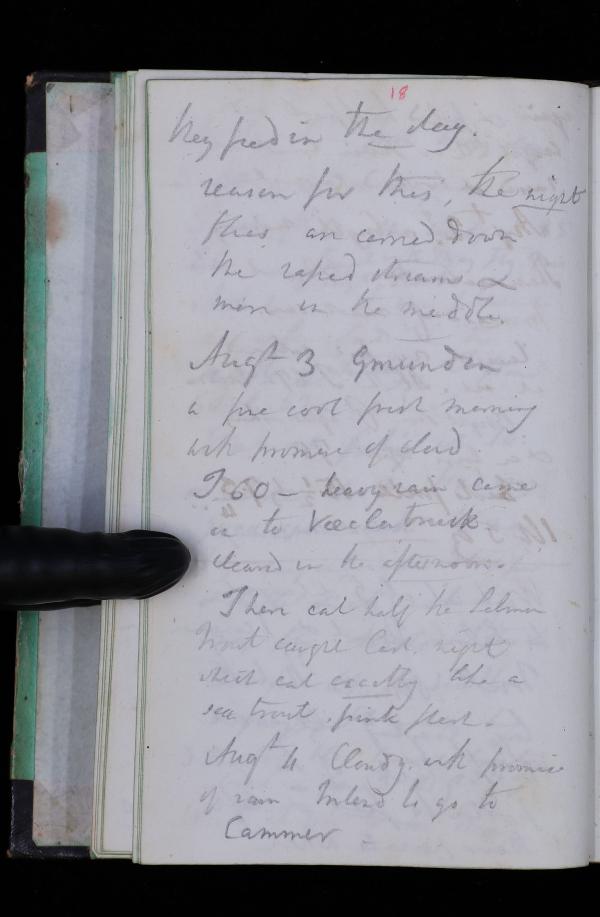 18
they feed in the day.
reason for this, the night
flies are carried down
the raped stream &
more in the middle.
Augt 3 Gmunden
a fine cool fresh morning
with promise of cloud
T 60 – heavy rain came
on to
cleared in the afternoon.
I have eat half the Salmon
trout caught last night
which eat exactly like a
sea trout. pink flesh.
Augt 4 Cloudy. with promise
of rain Intend to go to
Cammer